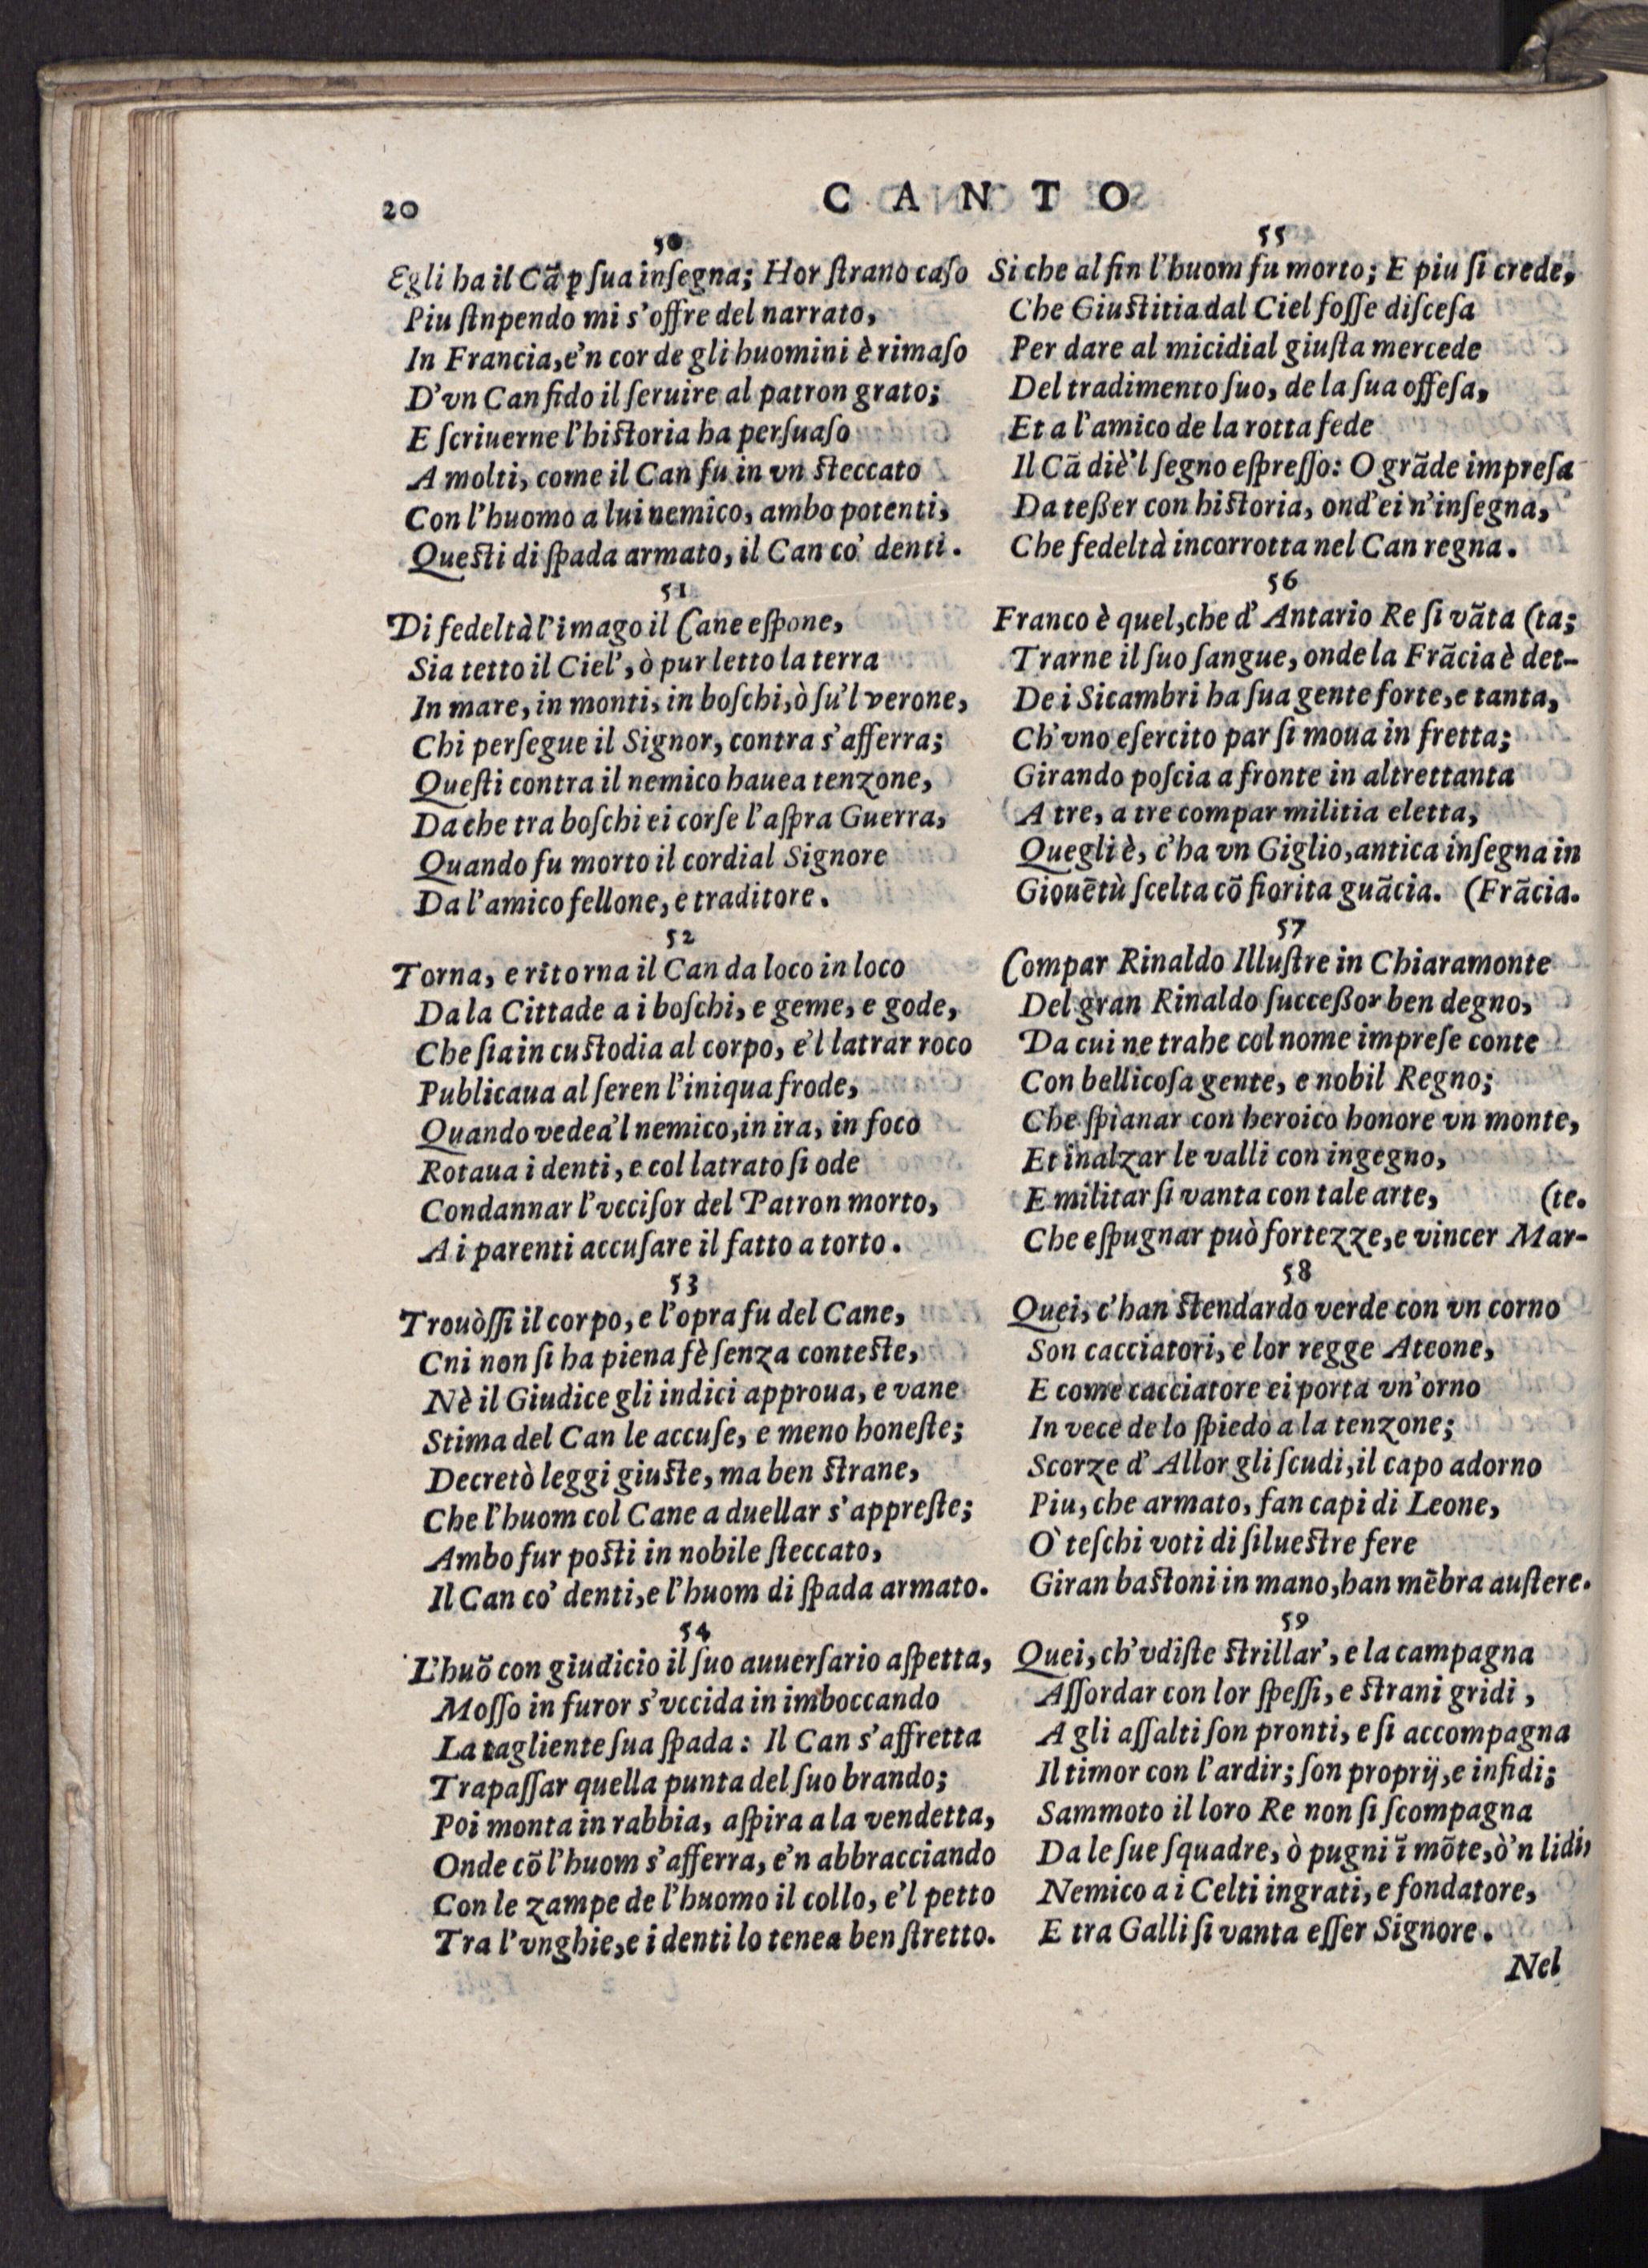 20
CANTO
50
Egli ha il Cã ꝑ ſua inſegna; Hor ſtrano caſo
Piu ſtnpendo mi s'offre del narrato,
In Francia, e'n cor de gli huomini è rimaſo
D'vn Can fido il ſeruire al patron grato;
E ſcriuerne l'hiſtoria ha perſuaſo
A molti, come il Can fu in vn ſteccato
Con l'huomo a lui nemico, ambo potenti,
Queſti di ſpada armato, il Can co' denti.
51
Di fedeltà l'imago il Cane eſpone,
Sia tetto il Ciel', ò pur letto la terra
In mare, in monti, in boſchi, ò ſu'l verone,
Chi perſegue il Signor, contra s'afferra;
Queſti contra il nemico hauea tenzone,
Da che tra boſchi ei corſe l'aſpra Guerra,
Quando fu morto il cordial Signore
Da l'amico fellone, e traditore.
52
Torna, e ritorna il Can da loco in loco
Da la Cittade a i boſchi, e geme, e gode,
Che ſia in cuſtodia al corpo, e'l latrar roco
Publicaua al ſeren l'iniqua frode,
Quando vedea'l nemico, in ira, in foco
Rotaua i denti, e col latrato ſi ode
Condannar l'vcciſor del Patron morto,
A i parenti accuſare il fatto a torto.
53
Trouòſſi il corpo, e l'opra fu del Cane,
Cni non ſi ha piena fè ſenza conteſte,
Nè il Giudice gli indici approua, e vane
Stima del Can le accuſe, e meno honeſte;
Decretò leggi giuſte, ma ben ſtrane,
Che l'huom col Cane a duellar s'appreſte;
Ambo fur poſti in nobile ſteccato,
Il Can co' denti, e l'huom di ſpada armato.
54
L'huõ con giudicio il ſuo auuerſario aſpetta,
Moſſo in furor s'vccida in imboccando
La tagliente ſua ſpada: Il Can s'affretta
Trapaſſar quella punta del ſuo brando;
Poi monta in rabbia, aſpira a la vendetta,
Onde cõ l'huom s'afferra, e'n abbracciando
Con le zampe de l'huomo il collo, e'l petto
Tra l'vnghie, e i denti lo tenea ben ſtretto.
55
Si che al fin l'huom fu morto; E piu ſi crede,
Che Giuſtitia dal Ciel foſſe diſceſa
Per dare al micidial giuſta mercede
Del tradimento ſuo, de la ſua offeſa,
Et a l'amico de la rotta fede
Il Cã diè'l ſegno eſpreſſo: O grãde impreſa
Da teßer con hiſtoria, ond'ei n'inſegna,
Che fedeltà incorrotta nel Can regna.
56
Franco è quel, che d'Antario Re ſi vãta (ta;
Trarne il ſuo ſangue, onde la Frãcia è det-
De i Sicambri ha ſua gente forte, e tanta,
Ch'vno eſercito par ſi moua in fretta;
Girando poſcia a fronte in altrettanta
A tre, a tre compar militia eletta,
Quegli è, c'ha vn Giglio, antica inſegna in
Giouẽtù ſcelta cõ fiorita guãcia. (Frãcia.
57
Compar Rinaldo Illuſtre in Chiaramonte
Del gran Rinaldo ſucceßor ben degno,
Da cui ne trahe col nome impreſe conte
Con bellicoſa gente, e nobil Regno;
Che ſpianar con heroico honore vn monte,
Et inalzar le valli con ingegno,
E militar ſi vanta con tale arte, (te.
Che eſpugnar può fortezze, e vincer Mar-
58
Quei, c'han ſtendardo verde con vn corno
Son cacciatori, e lor regge Ateone,
E come cacciatore ei porta vn'orno
In vece de lo ſpiedo a la tenzone;
Scorze d'Allor gli ſcudi, il capo adorno
Piu, che armato, fan capi di Leone,
Ò teſchi voti di ſilueſtre fere
Giran baſtoni in mano, han mẽbra auſtere.
59
Quei, ch'vdiſte ſtrillar', e la campagna
Aſſordar con lor ſpeſſi, e ſtrani gridi,
A gli aſſalti ſon pronti, e ſi accompagna
Il timor con l'ardir; ſon proprij, e infidi;
Sammoto il loro Re non ſi ſcompagna
Da le ſue ſquadre, ò pugni ĩ mõte, ò'n lidi,
Nemico a i Celti ingrati, e fondatore,
E tra Galli ſi vanta eſſer Signore.
Nel